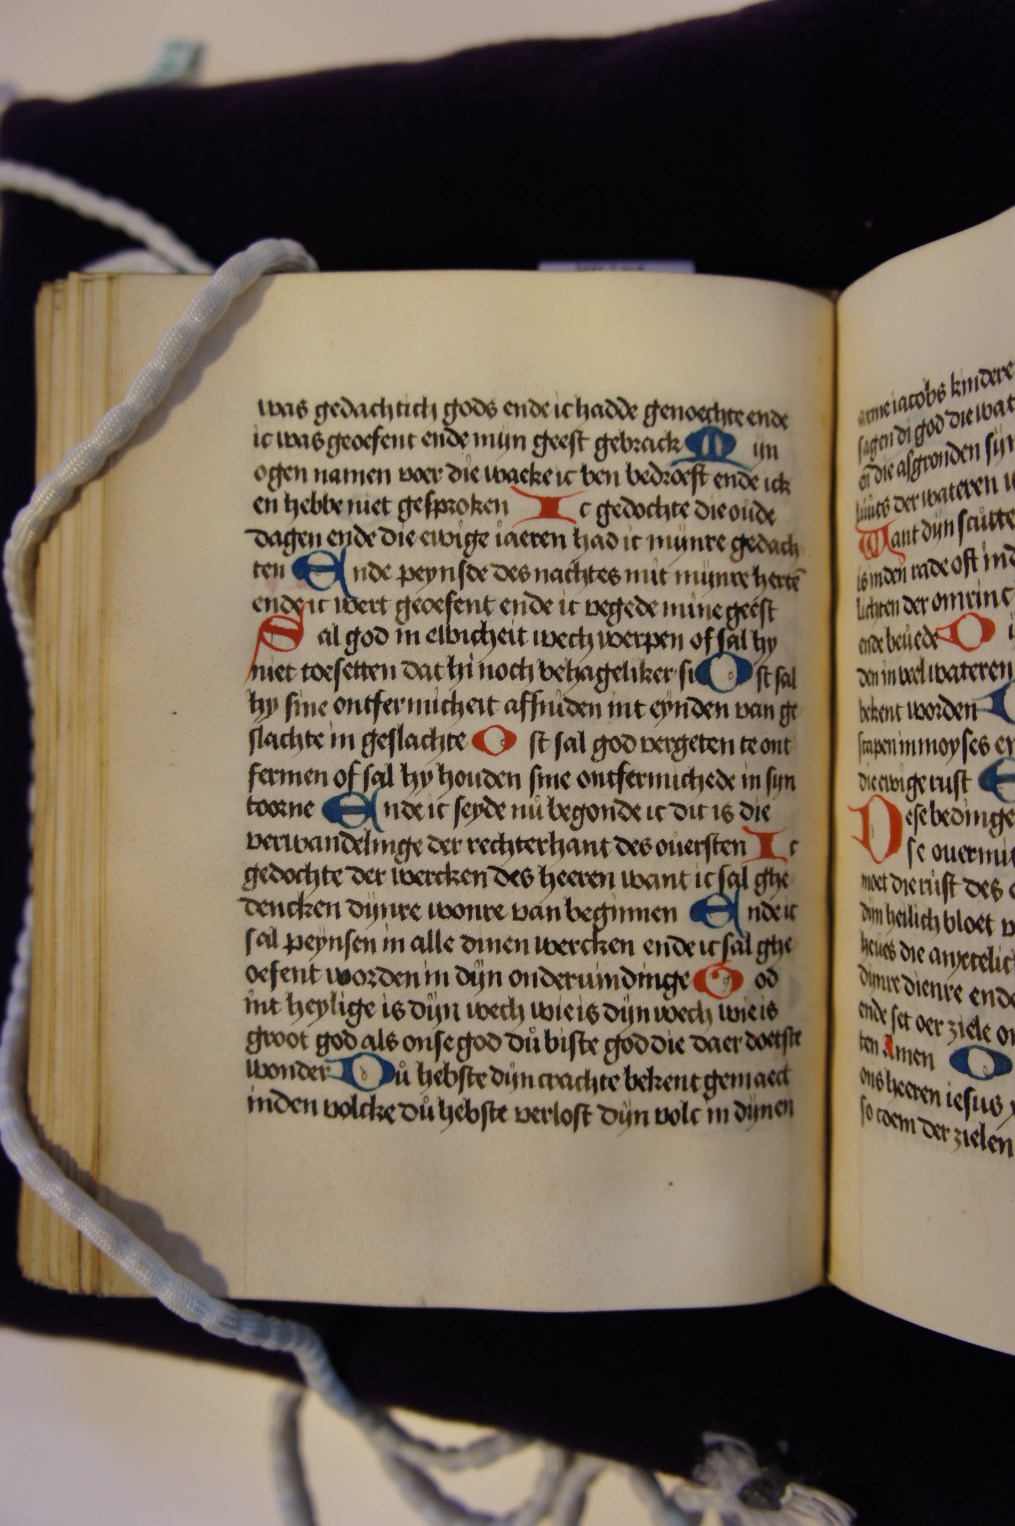 was gedachtich gods ende ic hadde genoechte ende
ic was geoefent ende mijn geest gebrack M ijn
ogen namen voer die waeke ic ben bedroeft ende ick
en hebbe niet gesproken Ic gedochte die oude
dagen ende die ewige iaeren had ic mijnre gedach
ten Ende peynsde des nachtes mit mijnre herte
ende ic wert geoefent ende ic vegede mine geest
Sal god in elbicheit wech werpen of sal hy
niet toesetten dat hi noch behageliker si Ost sal
hy sine ontfermicheit afsniden int eynden van ge
slachte in geslachte Ost sal god vergeten te ont
fermen of sal hy houden sine ontfermichede in sijn
toorne Ende ic seyde nu begonde ic dit is die
verwandelinge der rechterhant des ouersten Ic
gedochte der wercken des heeren want ic sal ghe
dencken dijnre wonre van beginnen Ende ic
sal peynsen in alle dinen wercken ende ic sal ghe
oefent worden in dijn onderuindinge God
int heylige is dijn wech wie is dijn wech wie is
groot god als onse god dů biste god die daer doetste
wonder Dů hebste dijn crachte bekent gemaect
inden volcke dů hebste verlost dijn volc in dijnen
iacobs kindere
sagen di god die wat
die afgronden sijn
der wateren
Want dijn scutte
is inden rade oft in
lichten der omrinc
ende beuede O
den in veel wateren
bekent worden
scapen in moyses en
die ewige rust E
Dese bedinge
se ouermi
moet die rust des
dijn heilich bloet
heues die anxtelic
dijnre dienre ende
ende set oer ziele
ten Amen O
ons heeren iesus
so coem der zielen